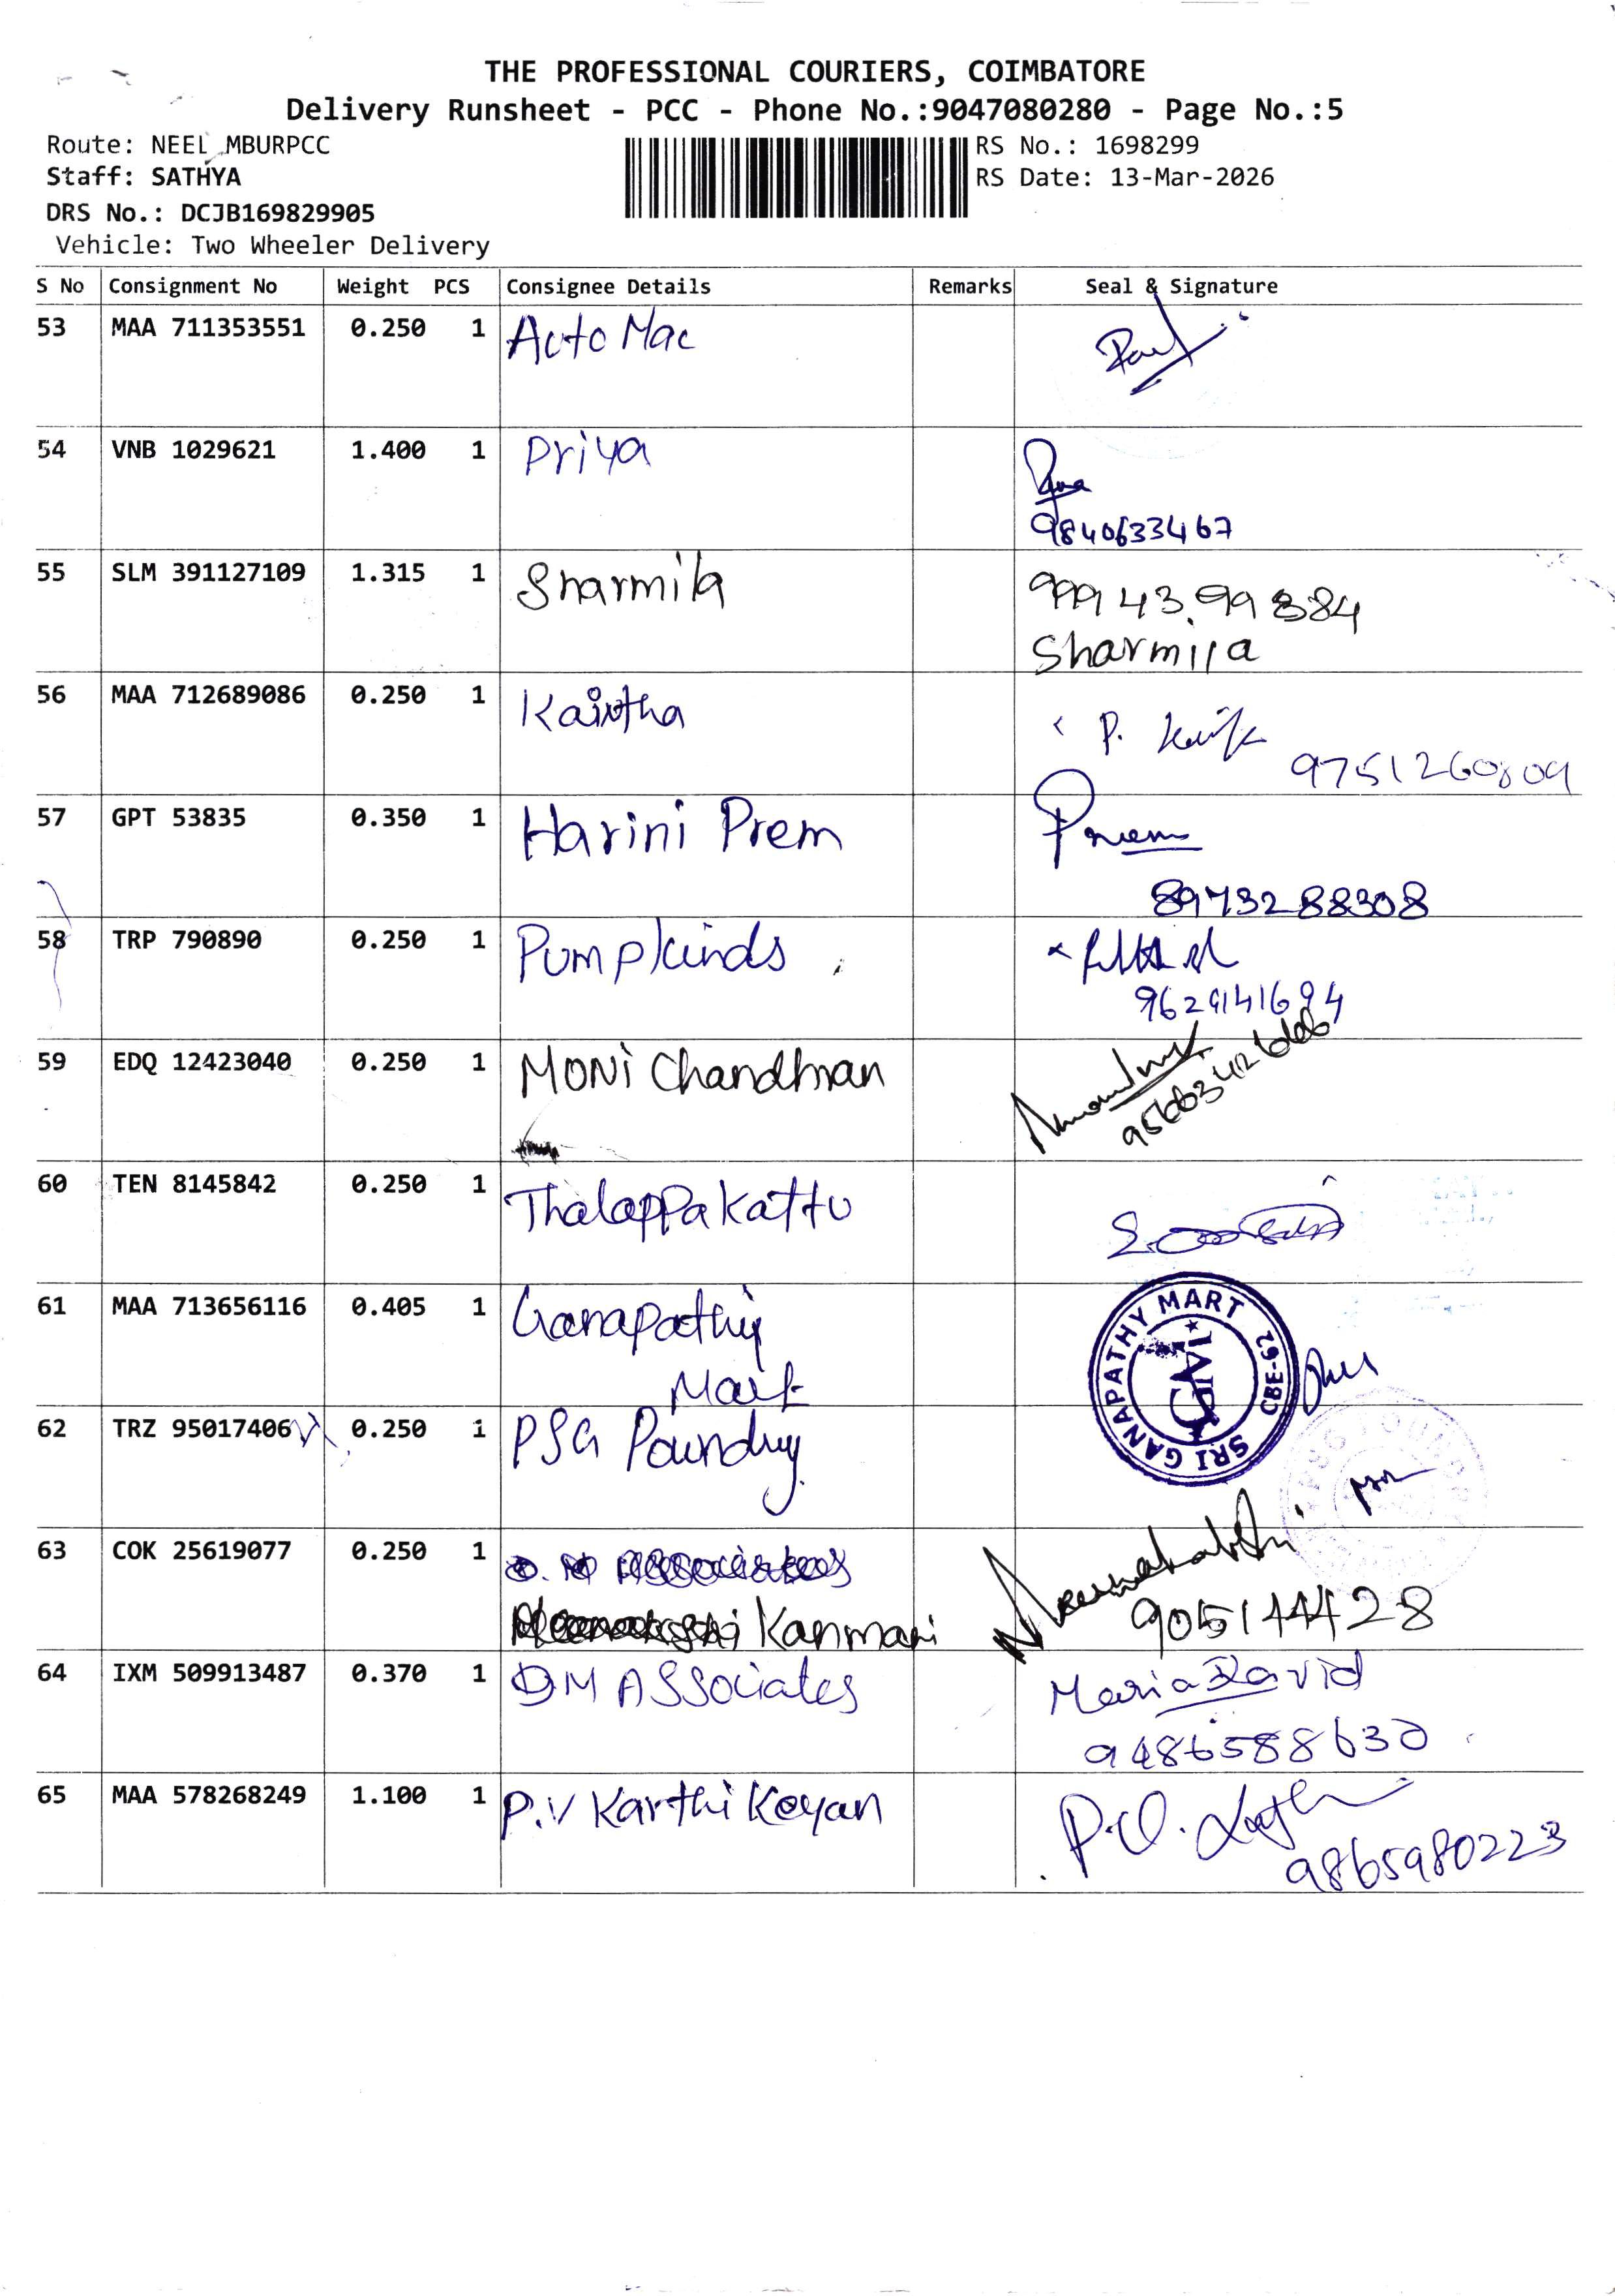 THE PROFESSIONAL COURIERS, COIMBATORE
Delivery Runsheet - PCC - Phone No.:9047080280 - Page No.:5
Route: NEEL MBURPCC
RS No.: 1698299
Staff: SATHYA
RS Date: 13-Mar-2026
DRS No.: DCJB169829905
Vehicle: Two Wheeler Delivery
S No Consignment No Weight PCS Consignee Details Remarks Seal & Signature
53 MAA 711353551 0.250 1 Auto Mac
54 VNB 1029621 1.400 1 Priya
9840633467
55 SLM 391127109 1.315 1 Sharmila 9994399384
Sharmila
56 MAA 712689086 0.250 1 P.
9751260809
57 GPT 53835 0.350 1 Harini Prem Prem
8973288308
58 TRP 790890 0.250 1 Pumpkinds
9629141694
59 EDQ 12423040 0.250 1 MONi Chandhran
60 TEN 8145842 0.250 1 ThalappaKattu
61 MAA 713656116 0.405 1 Ganapathy
Mart
SRI GANAPATHY MART
CBE-62
62 TRZ 95017406 0.250 1 PSG Foundry
63 COK 25619077 0.250 1
Kanmani
905144428
64 IXM 509913487 0.370 1 DM ASSociates Maria David
9486588630
65 MAA 578268249 1.100 1 P.V KarthiKeyan P.V.
9865980223